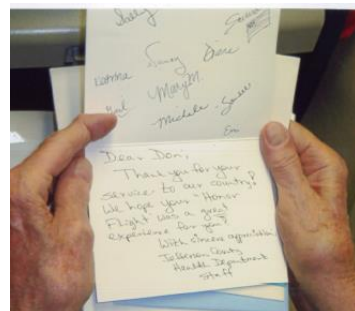 Shelly
Nancy Diane
Mary M.
Michele
Erin
Dear Don,
Thank you for your
service to our country!
We hope your "Honor
Flight" was a great
experience for you!
With sincere appreciation
Jefferson County
Health Department
Staff